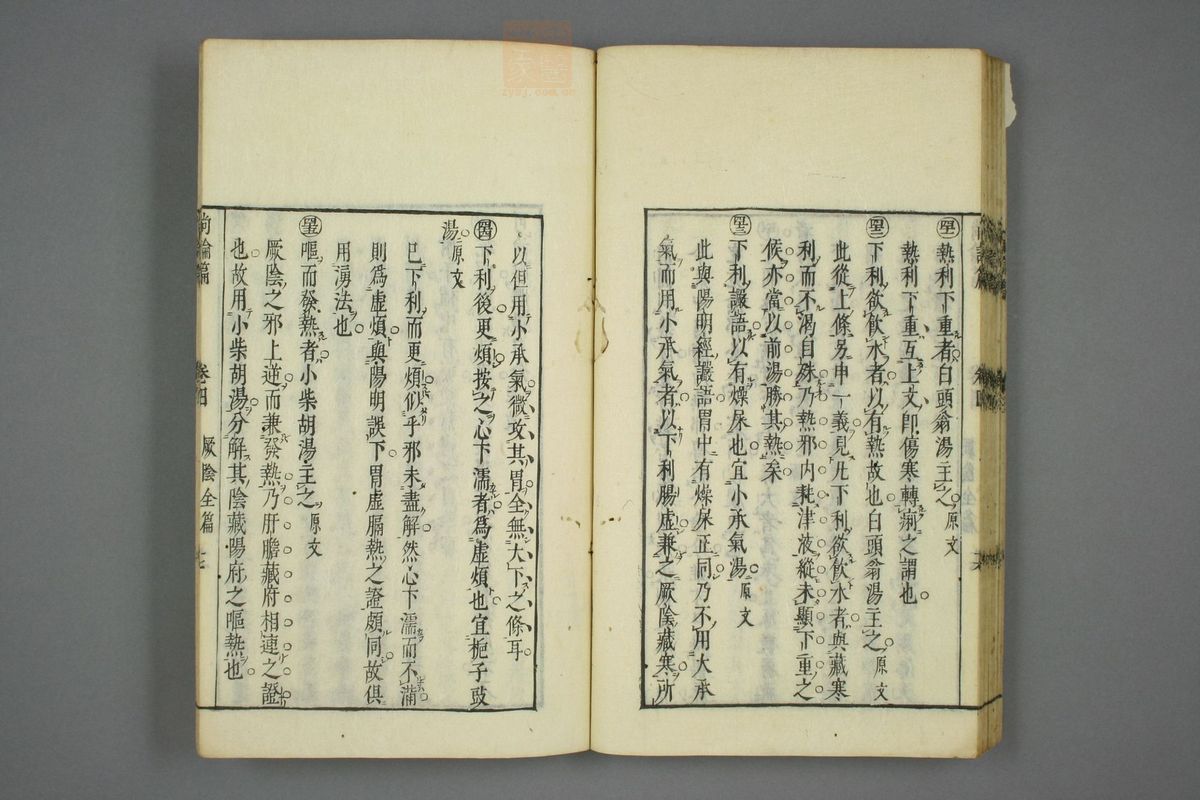 熱利下重者白頭翁湯主之原文
熱利下重互上文卽傷寒轉痢之謂也
下利欲飲水者以有熱故也白頭翁湯主之原文
此從上條另申一義見凡下利欲飲水者與藏寒
利而不渴自殊乃熱邪內耗津液縱未顯下重之
候亦當以前湯勝其熱矣
下利譫語以有燥屎也宜小承氣湯原文
此與陽明經譫語胃中有燥屎正同乃不用大承
氣而用小承氣者以下利腸虛兼之厥陰藏寒所
以但用小承氣微攻其胃全無大下之條耳
下利後更煩按之心下濡者爲虛煩也宜梔子豉
湯原文
已下利而更煩似乎邪未盡解然心下濡而不滿
則爲虛煩與陽明誤下胃虛膈熱之證頗同故俱
用湧法也
嘔而發熱者小柴胡湯主之原文
厥陰之邪上逆而兼發熱乃肝膽藏府相連之證
也故用小柴胡湯分解其陰藏陽府之嘔熱也
尚論篇 卷四 厥陰全篇